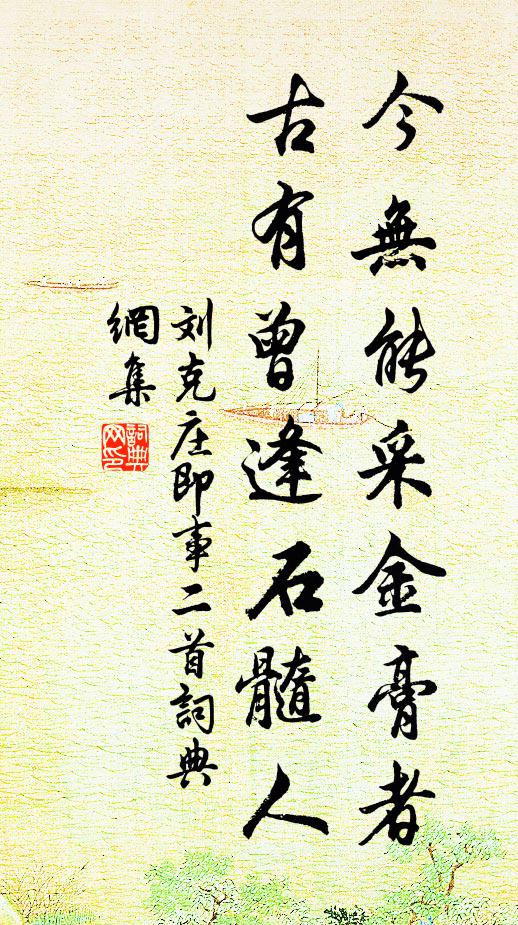 今無能采金膏者
古有曾逢石髓人
刘克庄即事二首詞典
網集
詞典网印